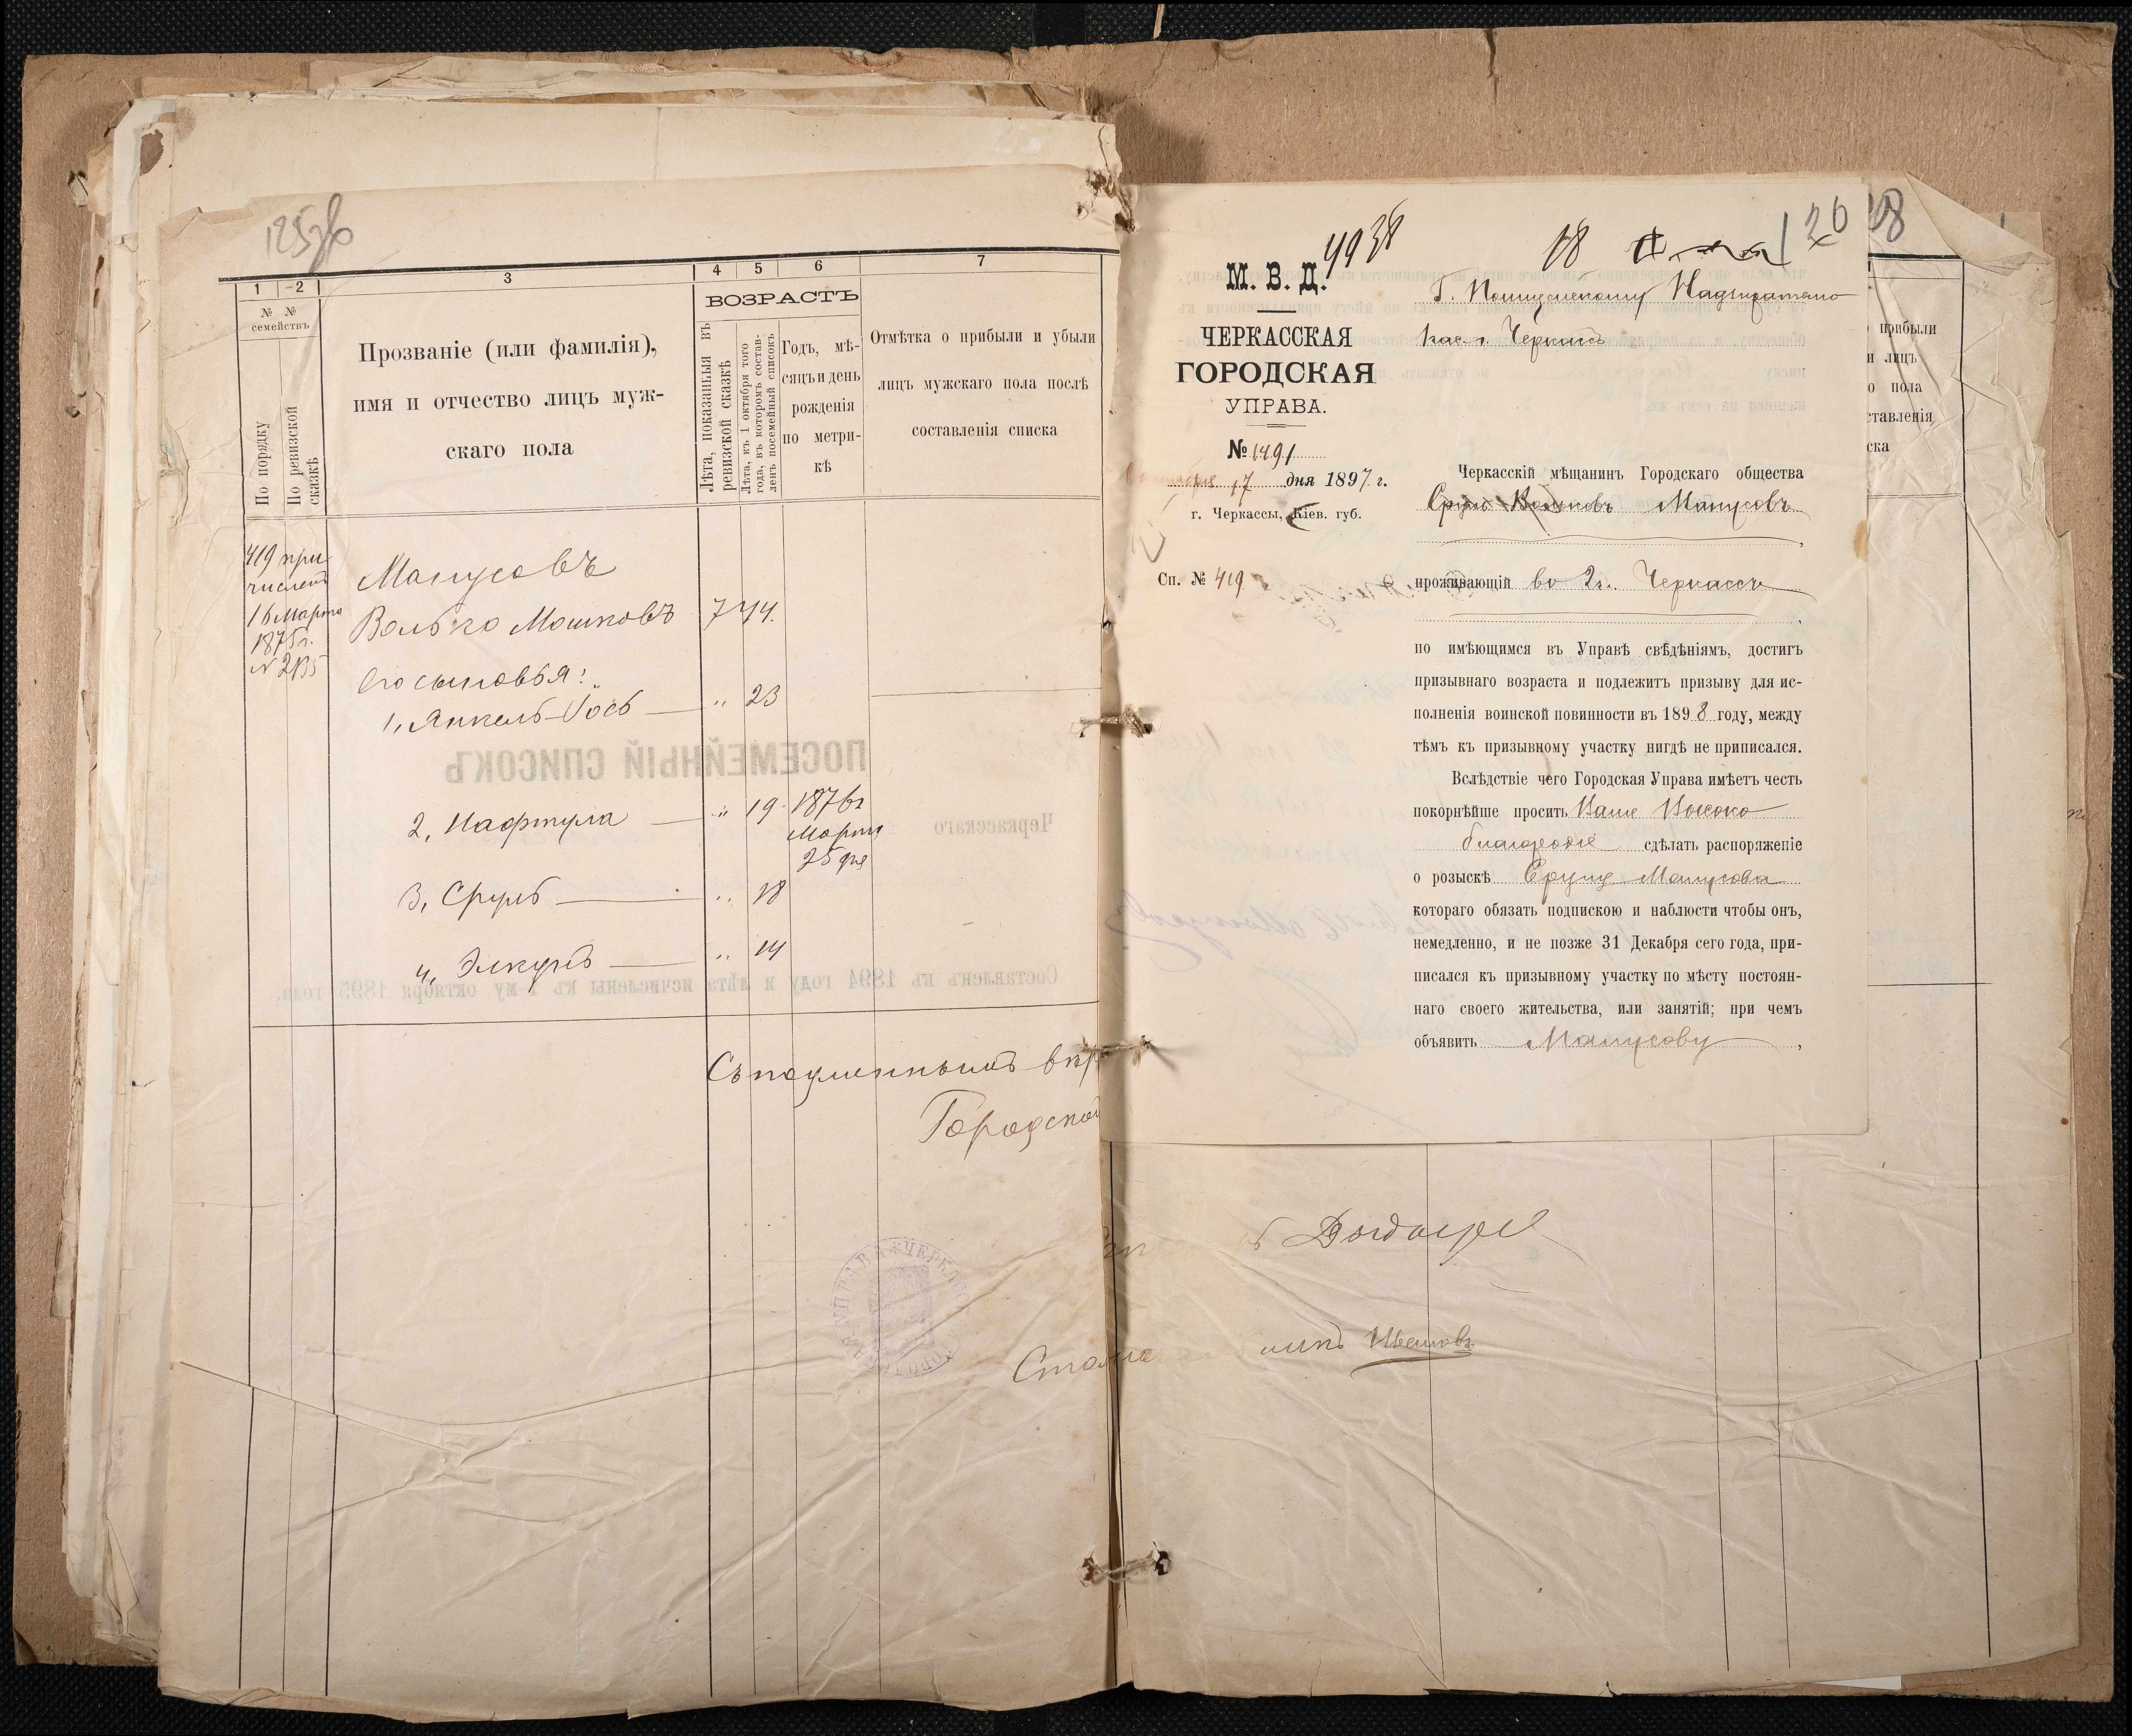 1 2 3 4 5 6 7
№ № семействъ
По порядку
По ревизской сказкѣ
Прозваніе (или фамилія),
имя и отчество лицъ муж-
скаго пола
ВОЗРАСТЪ
Лѣта, показанныя въ
ревизской сказкѣ
Лѣта, къ 1 октября того
года, въ которомъ состав-
ленъ посемейный списокъ
Годъ, мѣ-
сяцъ и день
рожденія
по метри-
кѣ
Отмѣтка о прибыли и убыли
лицъ мужскаго пола послѣ
составленія списка
419 при
численъ
16 Марта
1875 г.
Манусовъ
Волько Мошковъ 7 44.
Его сыновья:
1, Янкель-Іось " 23
2, Нафтула " 19 187
Марта
25 дня
3, Сруль " 18
4, Элкунъ " 14
ПОСЕМЕЙНЫЙ СПИСОКЪ
Черкасскаго
Составленъ въ 1894 году и лѣта исчислены къ 1-му октября 1895 года.
Съ подлиннымъ вѣр
Городской
4938
18
126
28
М. В. Д.
ЧЕРКАССКАЯ
ГОРОДСКАЯ
УПРАВА.
№ 1491
17 дня 1897 г.
г. Черкассы, Кіев. губ.
Сп. № 419
Г. Полицейскому Надзирателю
г. Черкассъ
Черкасскій мѣщанинъ Городскаго общества
Сруль Вольковъ Манусовъ,
проживающій въ г. Черкассы,
по имѣющимся въ Управѣ свѣдѣніямъ, достигъ
призывнаго возраста и подлежитъ призыву для ис-
полненія воинской повинности въ 1898 году, между
тѣмъ къ призывному участку нигдѣ не приписался.
Вслѣдствіе чего Городская Управа имѣетъ честь
покорнѣйше просить Ваше Высоко
благородіе сдѣлать распоряженіе
о розыскѣ Сруля Манусова
котораго обязать подпискою и наблюсти чтобы онъ,
немедленно, и не позже 31 Декабря сего года, при-
писался къ призывному участку по мѣсту постоян-
наго своего жительства, или занятій; при чемъ
объявить Манусову,
прибыли
лицъ
пола
ставленія
ска